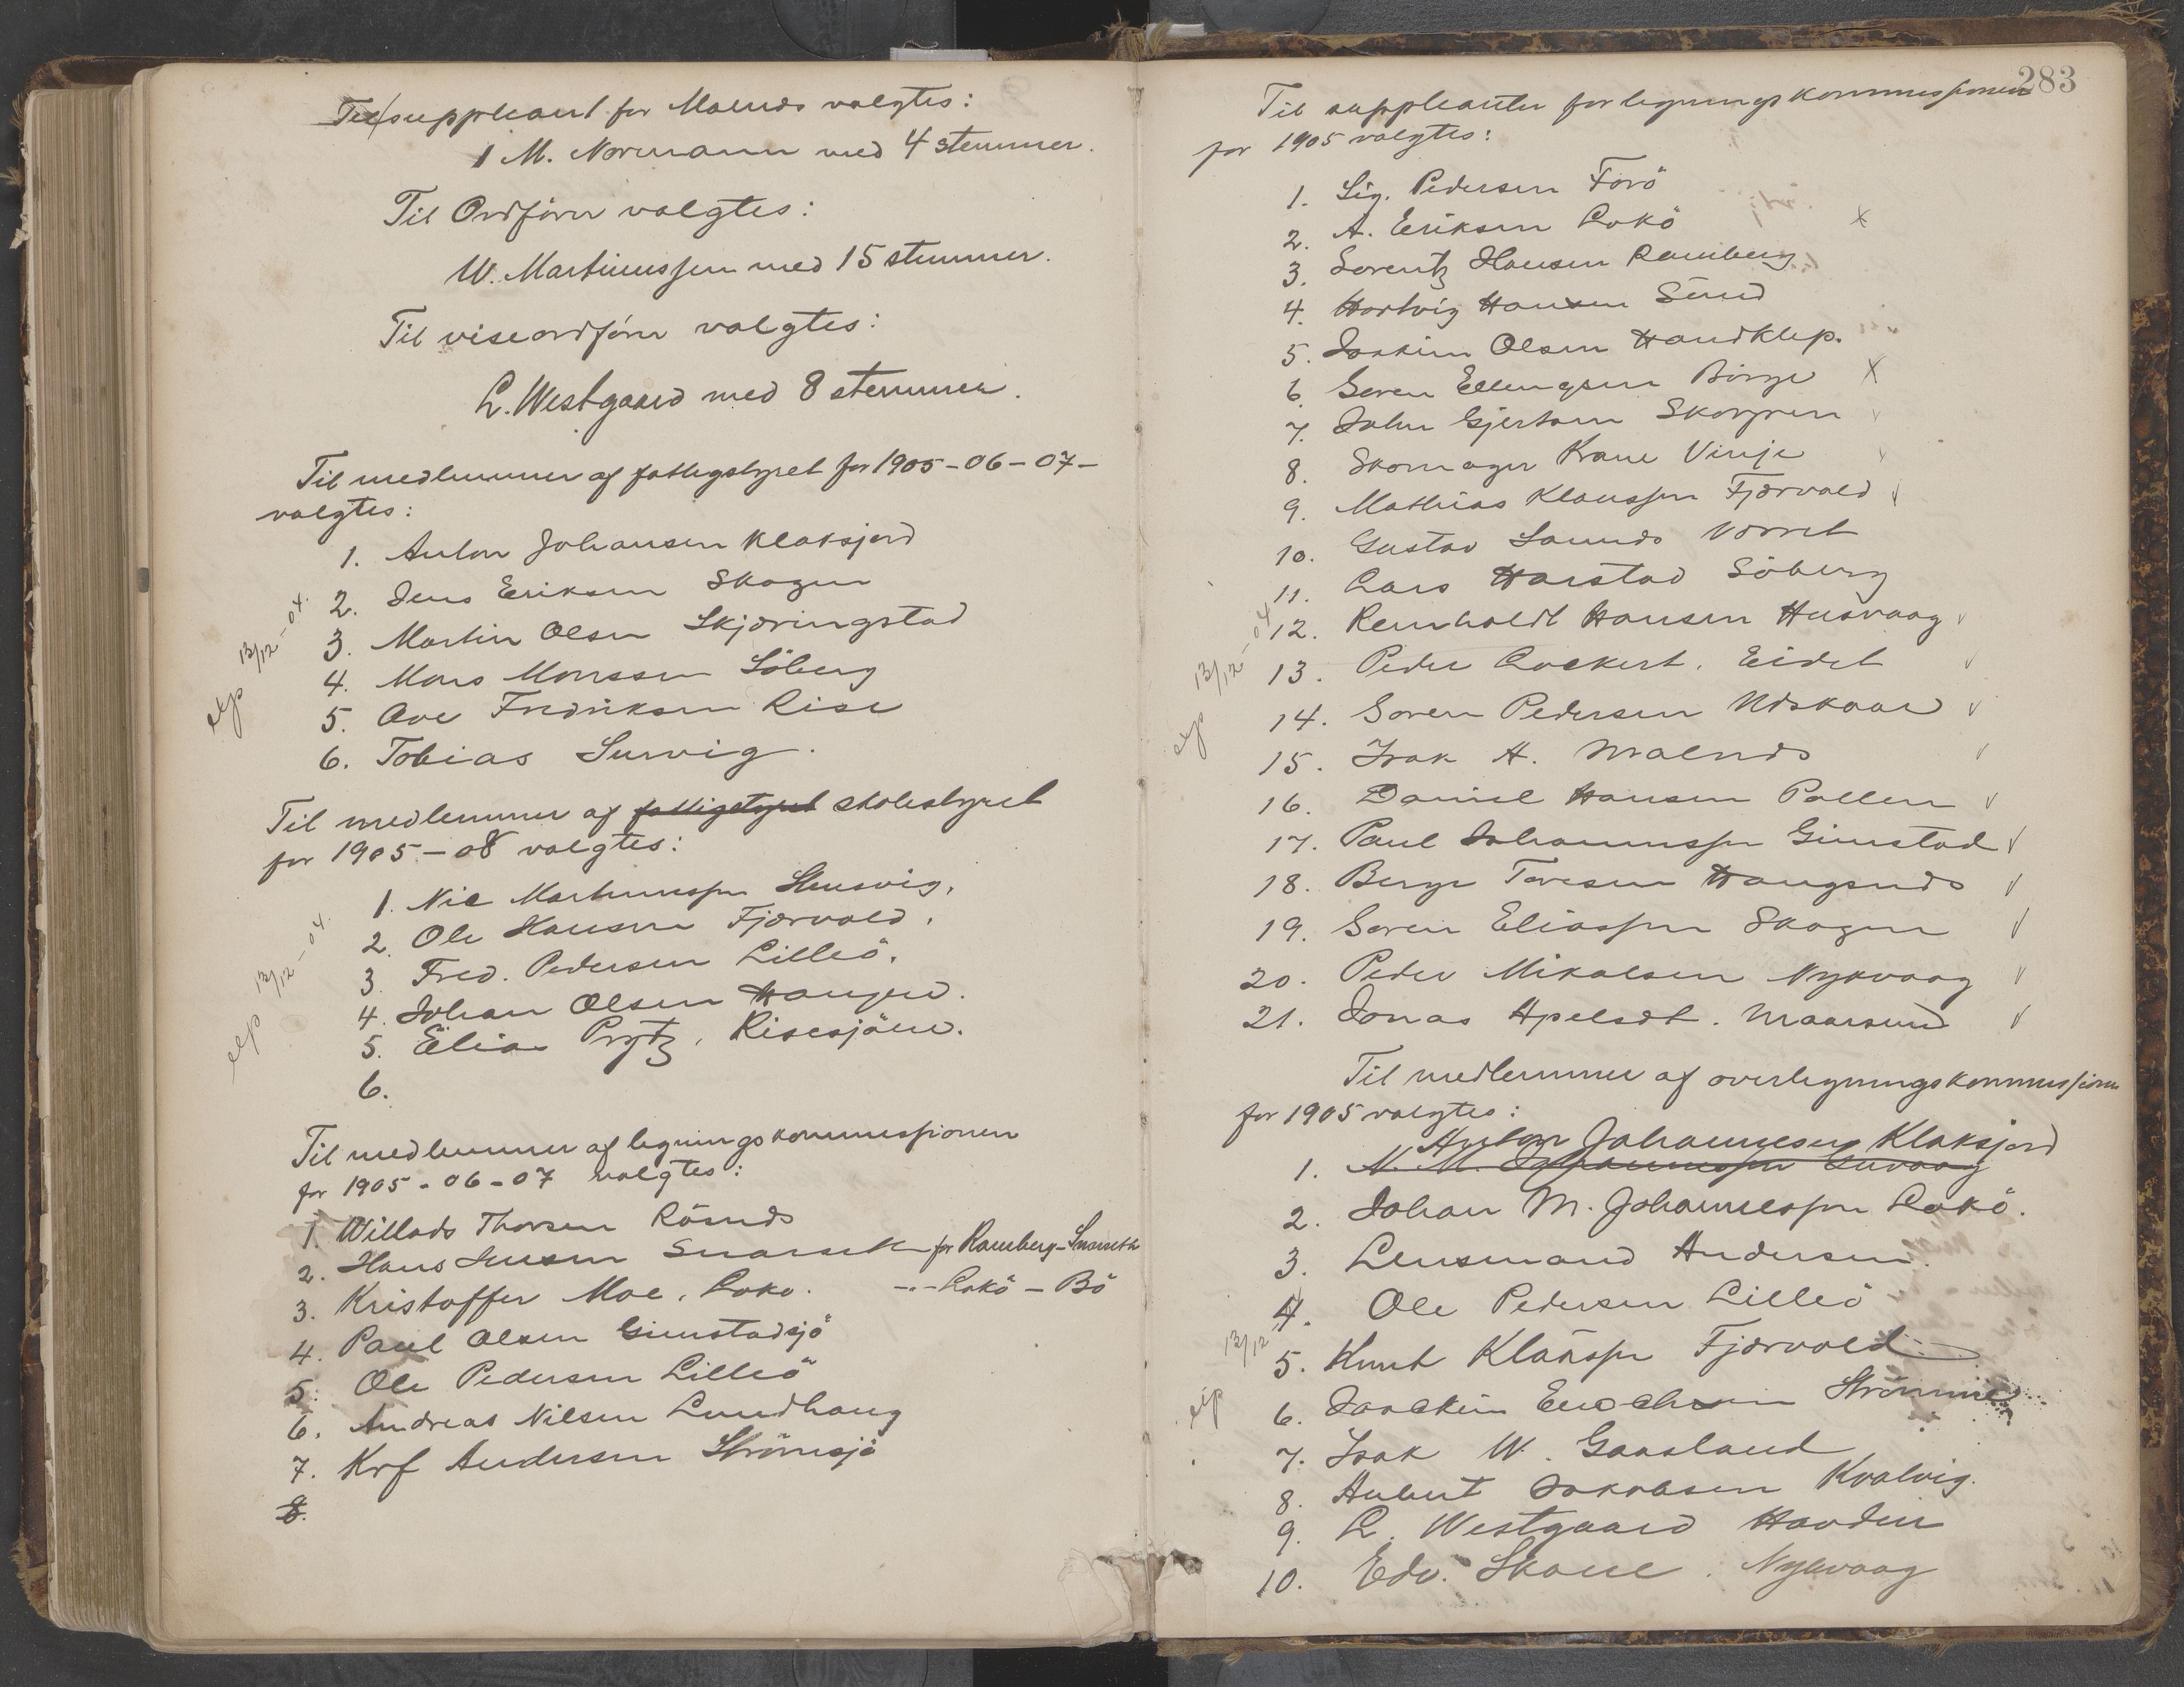 Til suppleant for Malnes valgtes:
1 M. Normann med 4 stemmer.
Til Ordförer valgtes:
W. Martinussen med 15 stemmer.
Til viseordförer valgtes:
L. Westgaard med 8 stemmer.
Til medlemmer af fattigstyret for 1905-06-07-
valgtes:
1. Anton Johansen Klaksjord
2. Jens Eriksen Skagen
3. Martin Olsen Skjæringstad
4. Mons Monssen Söberg
5. Ove Fredriksen Rise
6. Tobias Survig.
exp 13/12-04.
Til medlemmer af fattigstyret skolestyret
for 1905-08 valgtes:
1. Nic Martinussen Steusvig.
2. Ole Hansen Fjærvold.
3. Fred. Pedersen Lilleö.
4. Johan Olsen Haugen.
5. Elias Prytz, Risesjöen.
6.
exp 13/12-04.
Til medlemmer af ligningskommissionen
for 1905-06-07 valgtes:
1. Willads Thorsen Rösnds
2. Hans Jensen Snarset for Ramberg-Snarseth
3. Kristoffer Moe, Lokö. -"- Lokö - Bö
4. Paul Olsen Gimstadsjö
5. Ole Pedersen Lilleö
6. Andreas Nilsen Lundhaug
7. Krf Andersen Strömsjö
8.
283
Til suppleanter for ligningskommissionen
for 1905 valgtes:
1. Sig. Pedersen Forö
2. A. Eriksen Lokö x
3. Lorentz Hansen Ramberg
4. Hartvig Hansen Sund
5. Joakim Olsen Handklep.
6. Søren Ellingsen Börge x
7. John Gjertsen Skorpen
8. Skomager Krane Vinje
9. Mathias Klaussen Fjærvold
10. Gustav Saunds Vorret
11. Lars Harstad Söberg
12. Reinholdt Hansen Husvaag
13. Peder Lockert. Eidet
14. Søren Pedersen Udskaar
15. Isak A. Malnds
16. Daniel Hansen Pollen
17. Paul Johannessen Gimstad
18. Berge Toresen Haugsnds
19. Søren Eliassen Skagen
20. Peder Mikalsen Nykvaag
21. Jonas Apelsdt. Maarsund
exp 13/12-04
Til medlemmer af overligningskommissionen
for 1905 valgtes:
Anton Johannesen Klaksjord
1. N. M. Johannessen Guvaag
2. Johan M. Johannessen Lokö.
3. Lensmand Andersen.
4. Ole Pedersen Lilleö
5. Knut Klaussen Fjærvold
6. Joachim Enochsen Strömme
7. Isak W. Gaasland
8. Hubert Jakobsen Kvalvig.
9. L. Westgaard Havden
10. Edv. Skane. Nykvaag
exp 13/12